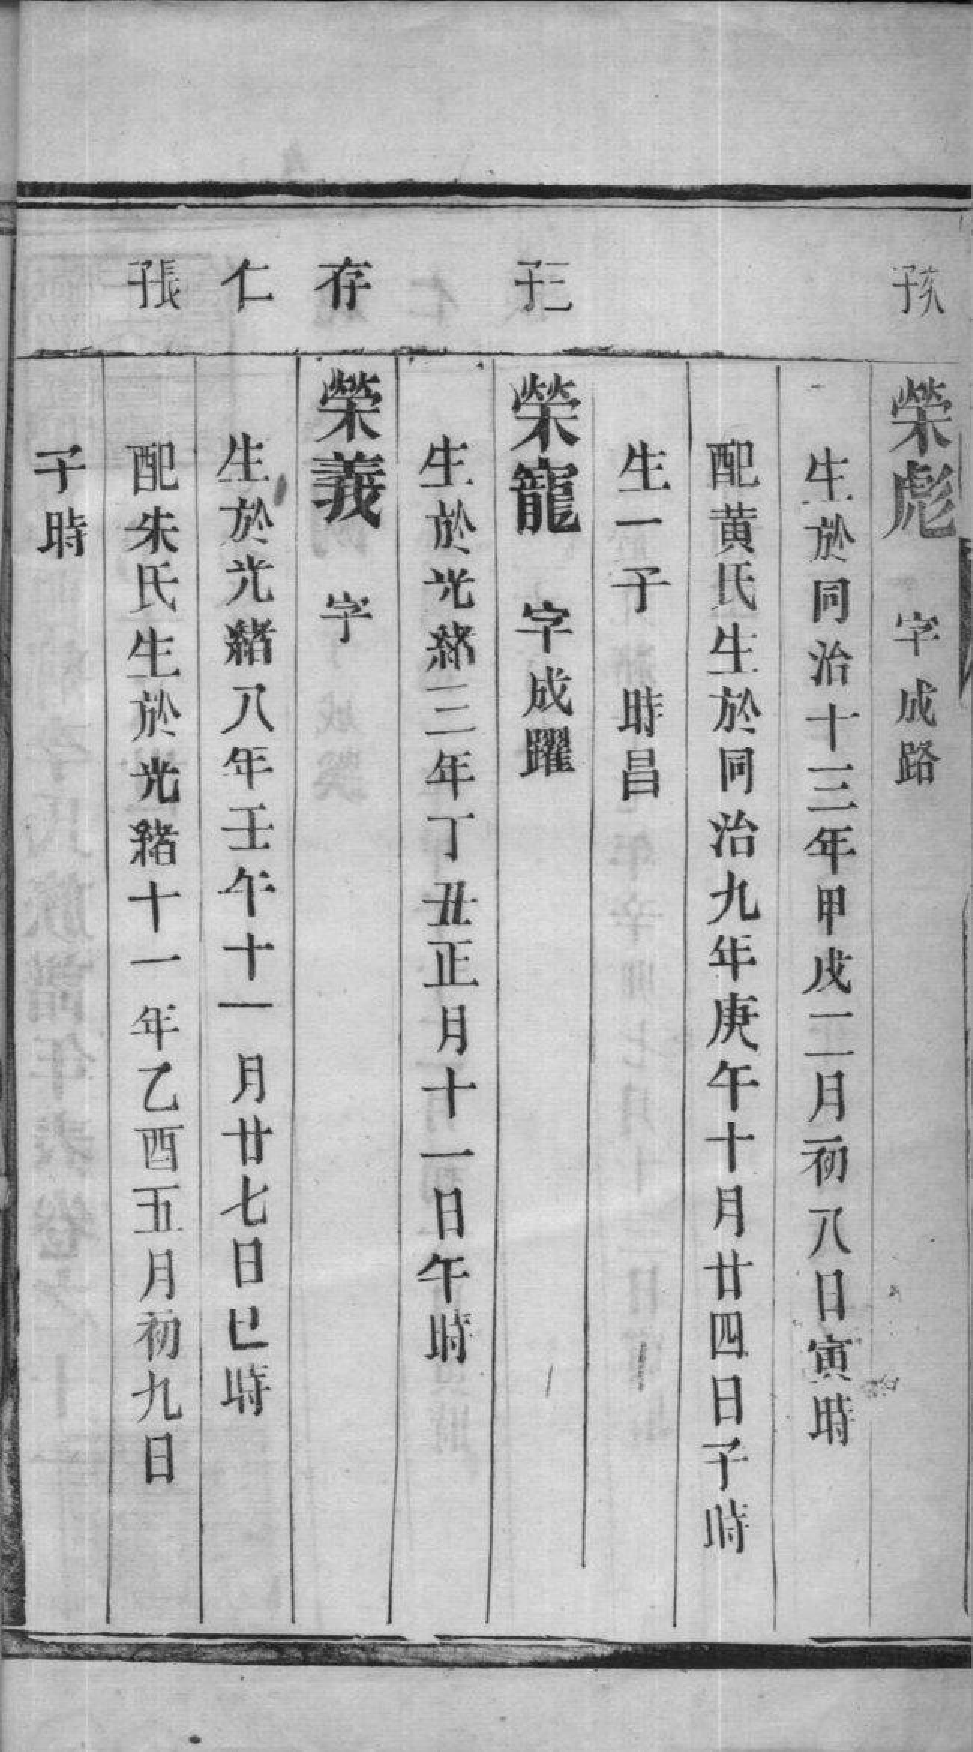 次子
榮彪 字成路
生於同治十三年甲戌二月初八日寅時
配黄氏生於同治九年庚午十月廿四日子時
生一子 時昌
三子
榮寵 字成躍
生於光緒三年丁丑正月十一日午時
存仁長子
榮義 字
生於光緒八年壬午十一月廿七日巳時
配朱氏生於光緒十一年乙酉五月初九日
子時